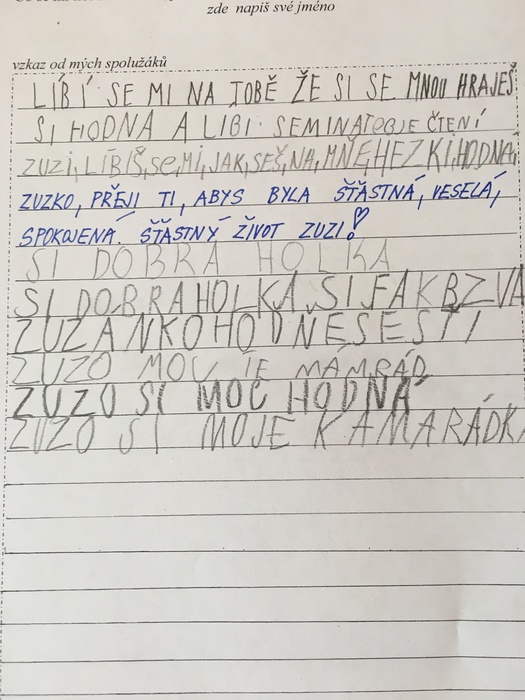 zde napiš své jméno
vzkaz od mých spolužáků
LÍBÍ SE MI NA TOBĚ ŽE SI SE MNOU HRAJEŠ
SI HODNA A LIBI SEMINATOBJE ČTENÍ
ZUZI, LÍBIŠ, SE, MI, JAK, SEŠ, NA, MNĚ, HEZKI, HODNÁ,
ZUZKO, PŘEJI TI, ABYS BYLA ŠŤASTNÁ, VESELÁ,
SPOKOJENÁ. ŠŤASTNÝ ŽIVOT ZUZI!
SI DOBRA HOLKA
SI DOBRA HOLKA, SI FAKBZVA
ZUZANKO HODNESESTI
ZUZO MOC JE MÁMRÁD
ZUZO SI MOC HODNÁ
ZUZO SI MOJE KAMARÁDKA